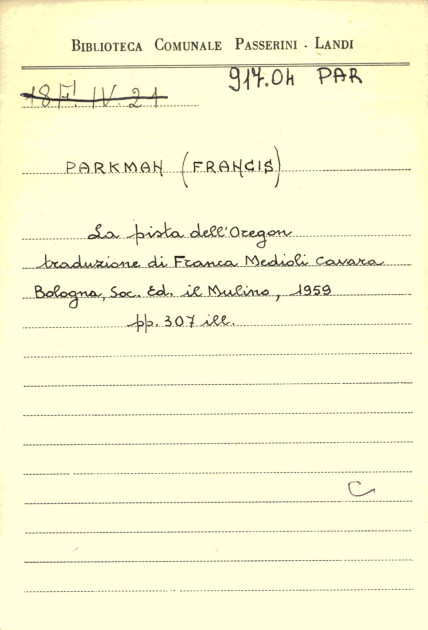 BIBLIOTECA COMUNALE PASSERINI - LANDI
917.04 PAR
18 F! IV. 21
PARKMAN (FRANCIS)
La pista dell'Oregon
traduzione di Franca Medioli Cavara
Bologna, Soc. Ed. il Mulino, 1959
pp. 307 ill.
C